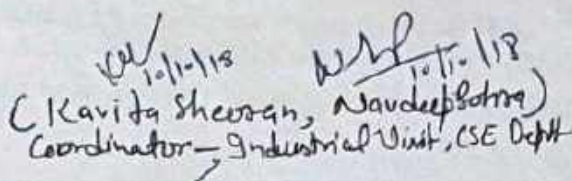 10/10/18 10/10/18
(Kavita Sheoran, Navdeep Bohra)
Coordinator - Industrial Visit, CSE Deptt